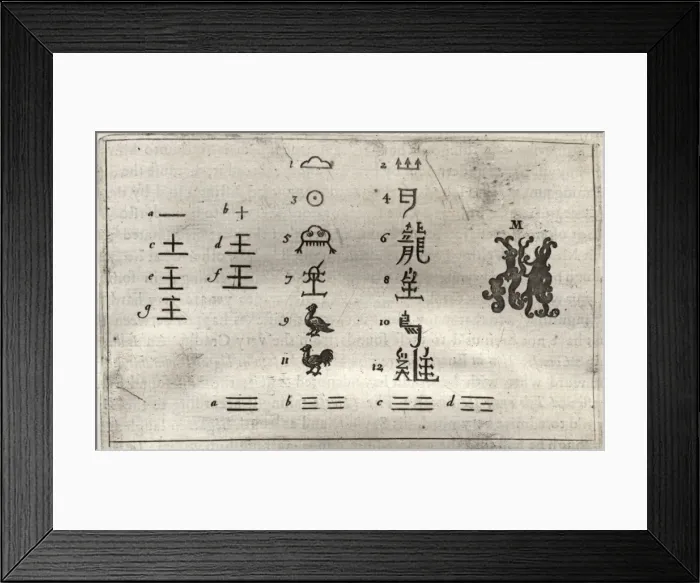 1 2
3 4
a 一 b 十
M
c 土 d 王
5 6 龍
e 王 f 王
7 8
g 主
9 10
11 12
a ☰ b c d